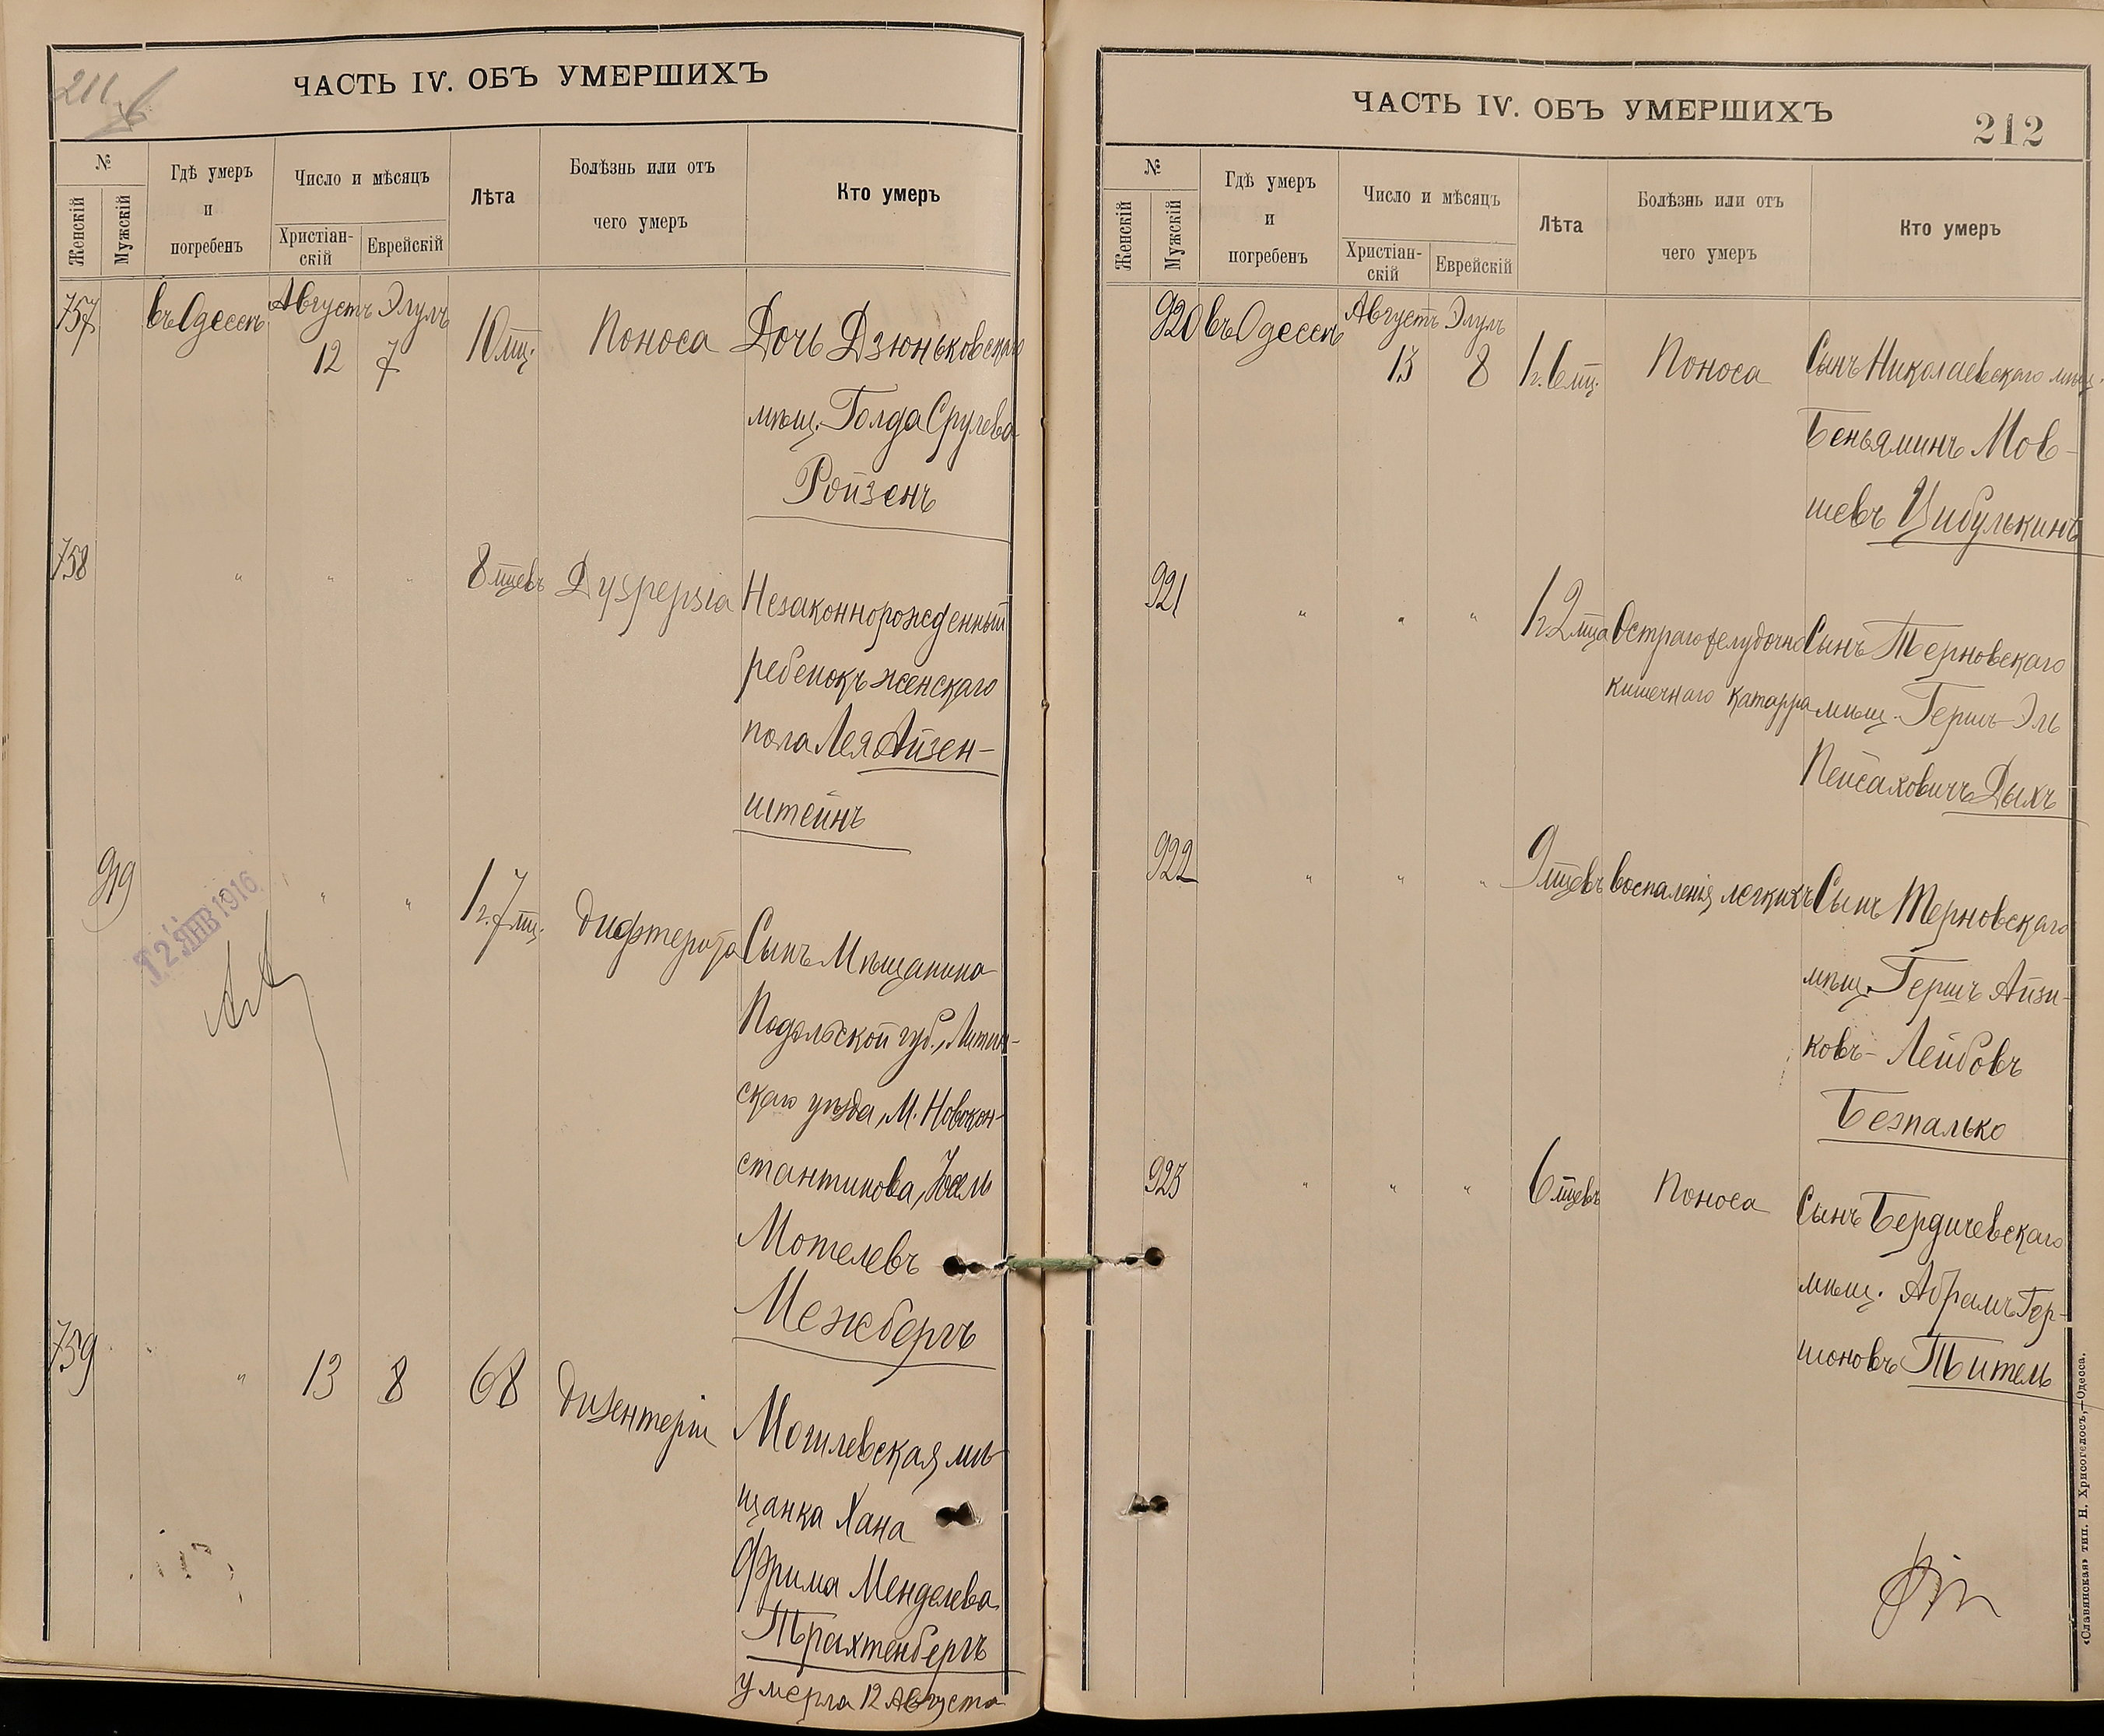 211 об
ЧАСТЬ IV. ОБЪ УМЕРШИХЪ
№
Женскій
Мужскій
Гдѣ умеръ
и
погребенъ
Число и мѣсяцъ
Христіан-
скій
Еврейскій
Лѣта
Болѣзнь или отъ
чего умеръ
Кто умеръ
757 въ Одессѣ Августъ Элулъ
12 7 10 мц. Поноса Дочь Дзюньковскаго
мѣщ. Голда Срулева
Ройзенъ
758 " " " 8 мцевъ Dyspepsia Незаконнорожденный
ребенокъ женскаго
пола Лея Айзен-
штейнъ
919 " " 1 г. 7 мц. дифтерита Сынъ Мѣщанина
12 ЯНВ 1916
Подольской губ., Литин-
скаго уѣзда, М. Новокон-
стантинова,
Мотелевъ
Межбергъ
759 " 13 8 68 дизентеріи Могилевская мѣ-
щанка Хана
Фрима Менделева
Трахтенбергъ
умерла 12 Августа
ЧАСТЬ IV. ОБЪ УМЕРШИХЪ
212
№
Женскій
Мужскій
Гдѣ умеръ
и
погребенъ
Число и мѣсяцъ
Христіан-
скій
Еврейскій
Лѣта
Болѣзнь или отъ
чего умеръ
Кто умеръ
920 въ Одессѣ Августъ Элулъ
13 8 1 г. 6 мц. Поноса Сынъ Николаевскаго мѣщ.
Беньяминъ Мов-
шевъ Цибулькинъ
921 " " " 1 г. 2 мца Остраго желудочно Сынъ Терновскаго
кишечнаго катарра мѣщ. Гершъ-Эль
Пейсаховичъ Дыхъ
922 " " " 9 мцевъ воспаленія легкихъ Сынъ Терновскаго
мѣщ. Гершъ Айзи-
ковъ-Лейбовъ
Безпалько
923 " " " 6 мцевъ Поноса Сынъ Бердичевскаго
мѣщ. Абрамъ Гер-
шоновъ Титель
«Славянская» тип. Н. Хрисогелосъ,—Одесса.